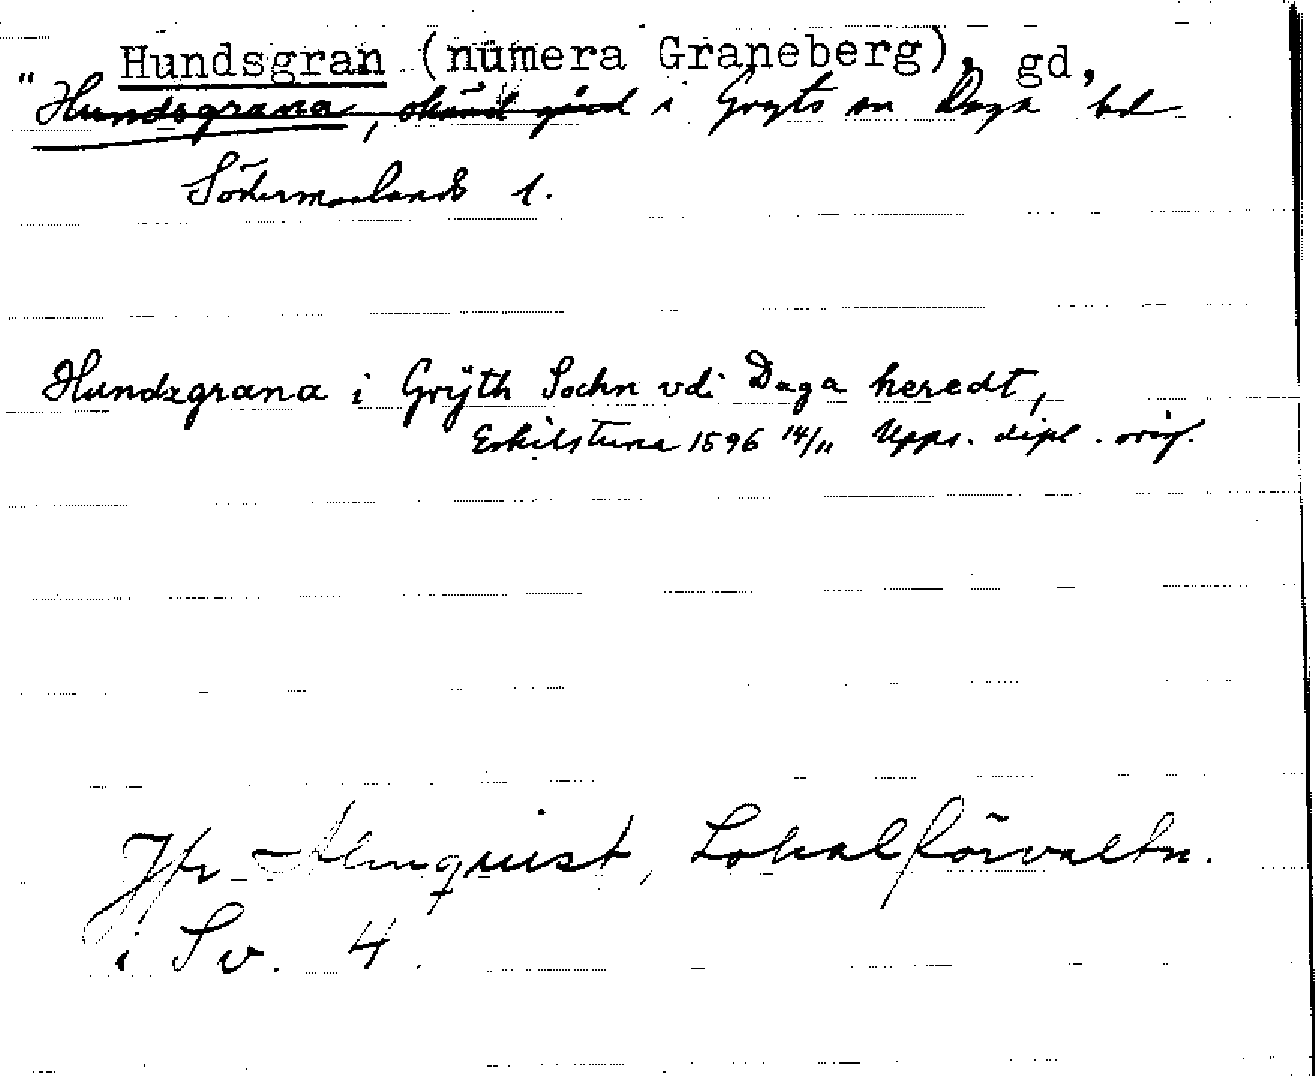 Hundsgran (numera Graneberg), gd,
" Hundsgrana, okänd gård i Gryts sn Daga hd
Södermanlands l.
Hundzgrana i Grÿth Sochn vdi Daga heredt,
Eskilstuna 1596 14/11 Upps. dipl. orig.
Jfr Almquist, Lokalförvaltn.
i Sv. 4.